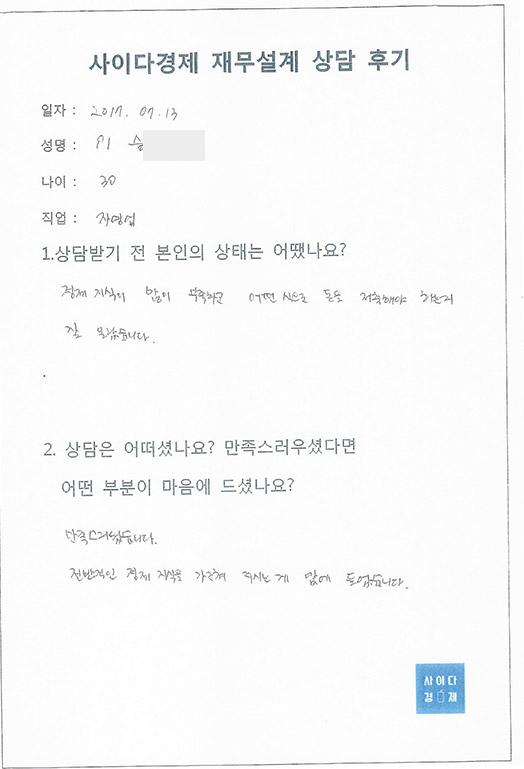 사이다경제 재무설계 상담 후기
일자 : 2017. 07. 13
성명 :
나이 : 30
직업 : 자영업
1.상담받기 전 본인의 상태는 어땠나요?
경제 지식이 많이 부족하고 어떤 식으로 돈을 저축해야 하는지
잘 몰랐습니다.
.
2. 상담은 어떠셨나요? 만족스러우셨다면
어떤 부분이 마음에 드셨나요?
만족스러웠습니다.
전반적인 경제 지식을 가르쳐 주시는 게 맘에 들었습니다.
사이다
경제